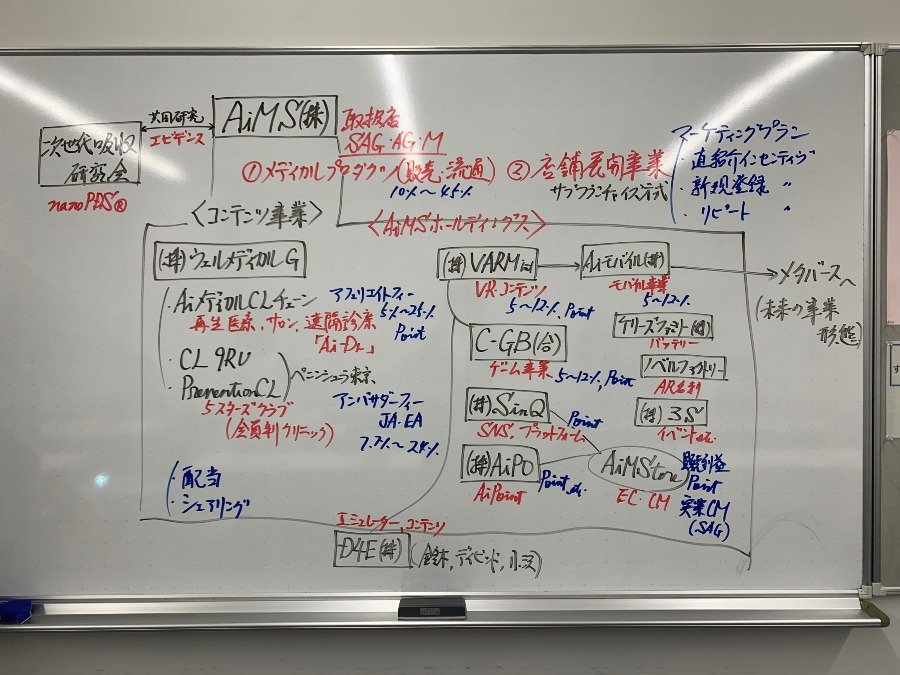 次世代吸収
研究会
nanoPDS®
共同研究
エビデンス
AiMS(株)
取扱店
SAG・AG・M
①メディカルプロダクツ(販売・流通)
10%〜45%
②店舗展開事業
サブフランチャイズ方式
マーケティングプラン
・直紹介インセンティブ
・新規登録 〃
・リピート 〃
〈コンテンツ事業〉
〈AiMSホールディングス〉
(株)ウェルメディカルG
・Aiメディカル CLチェーン
再生医療、サロン、遠隔診療
「Ai-Dr」
アフェリエイトフィー
5%〜25%
Point
・CL 9RU
・PreventionCL
ペニンシュラ東京
5スターズクラブ
(会員制クリニック)
アンバサダーフィー
JA・EA
・配当
・シェアリング
(株)VARM
VR・コンテンツ
5〜12%, Point
Aiモバイル(株)
モバイル事業
5〜12%
メタバースへ
(未来の事業
形態)
C-GB(合)
ゲーム事業
5〜12%, Point
バッテリー
ノベルファクトリー
AR名刺
(株)SinQ
SNS, プラットフォーム
Point
(株)3S
イベント etc.
(株)AiPO
AiPoint
Point, etc.
AiMStore
EC・CM
Point
実業CM
(SAG)
エミュレーター, コンテンツ
D4E(株)